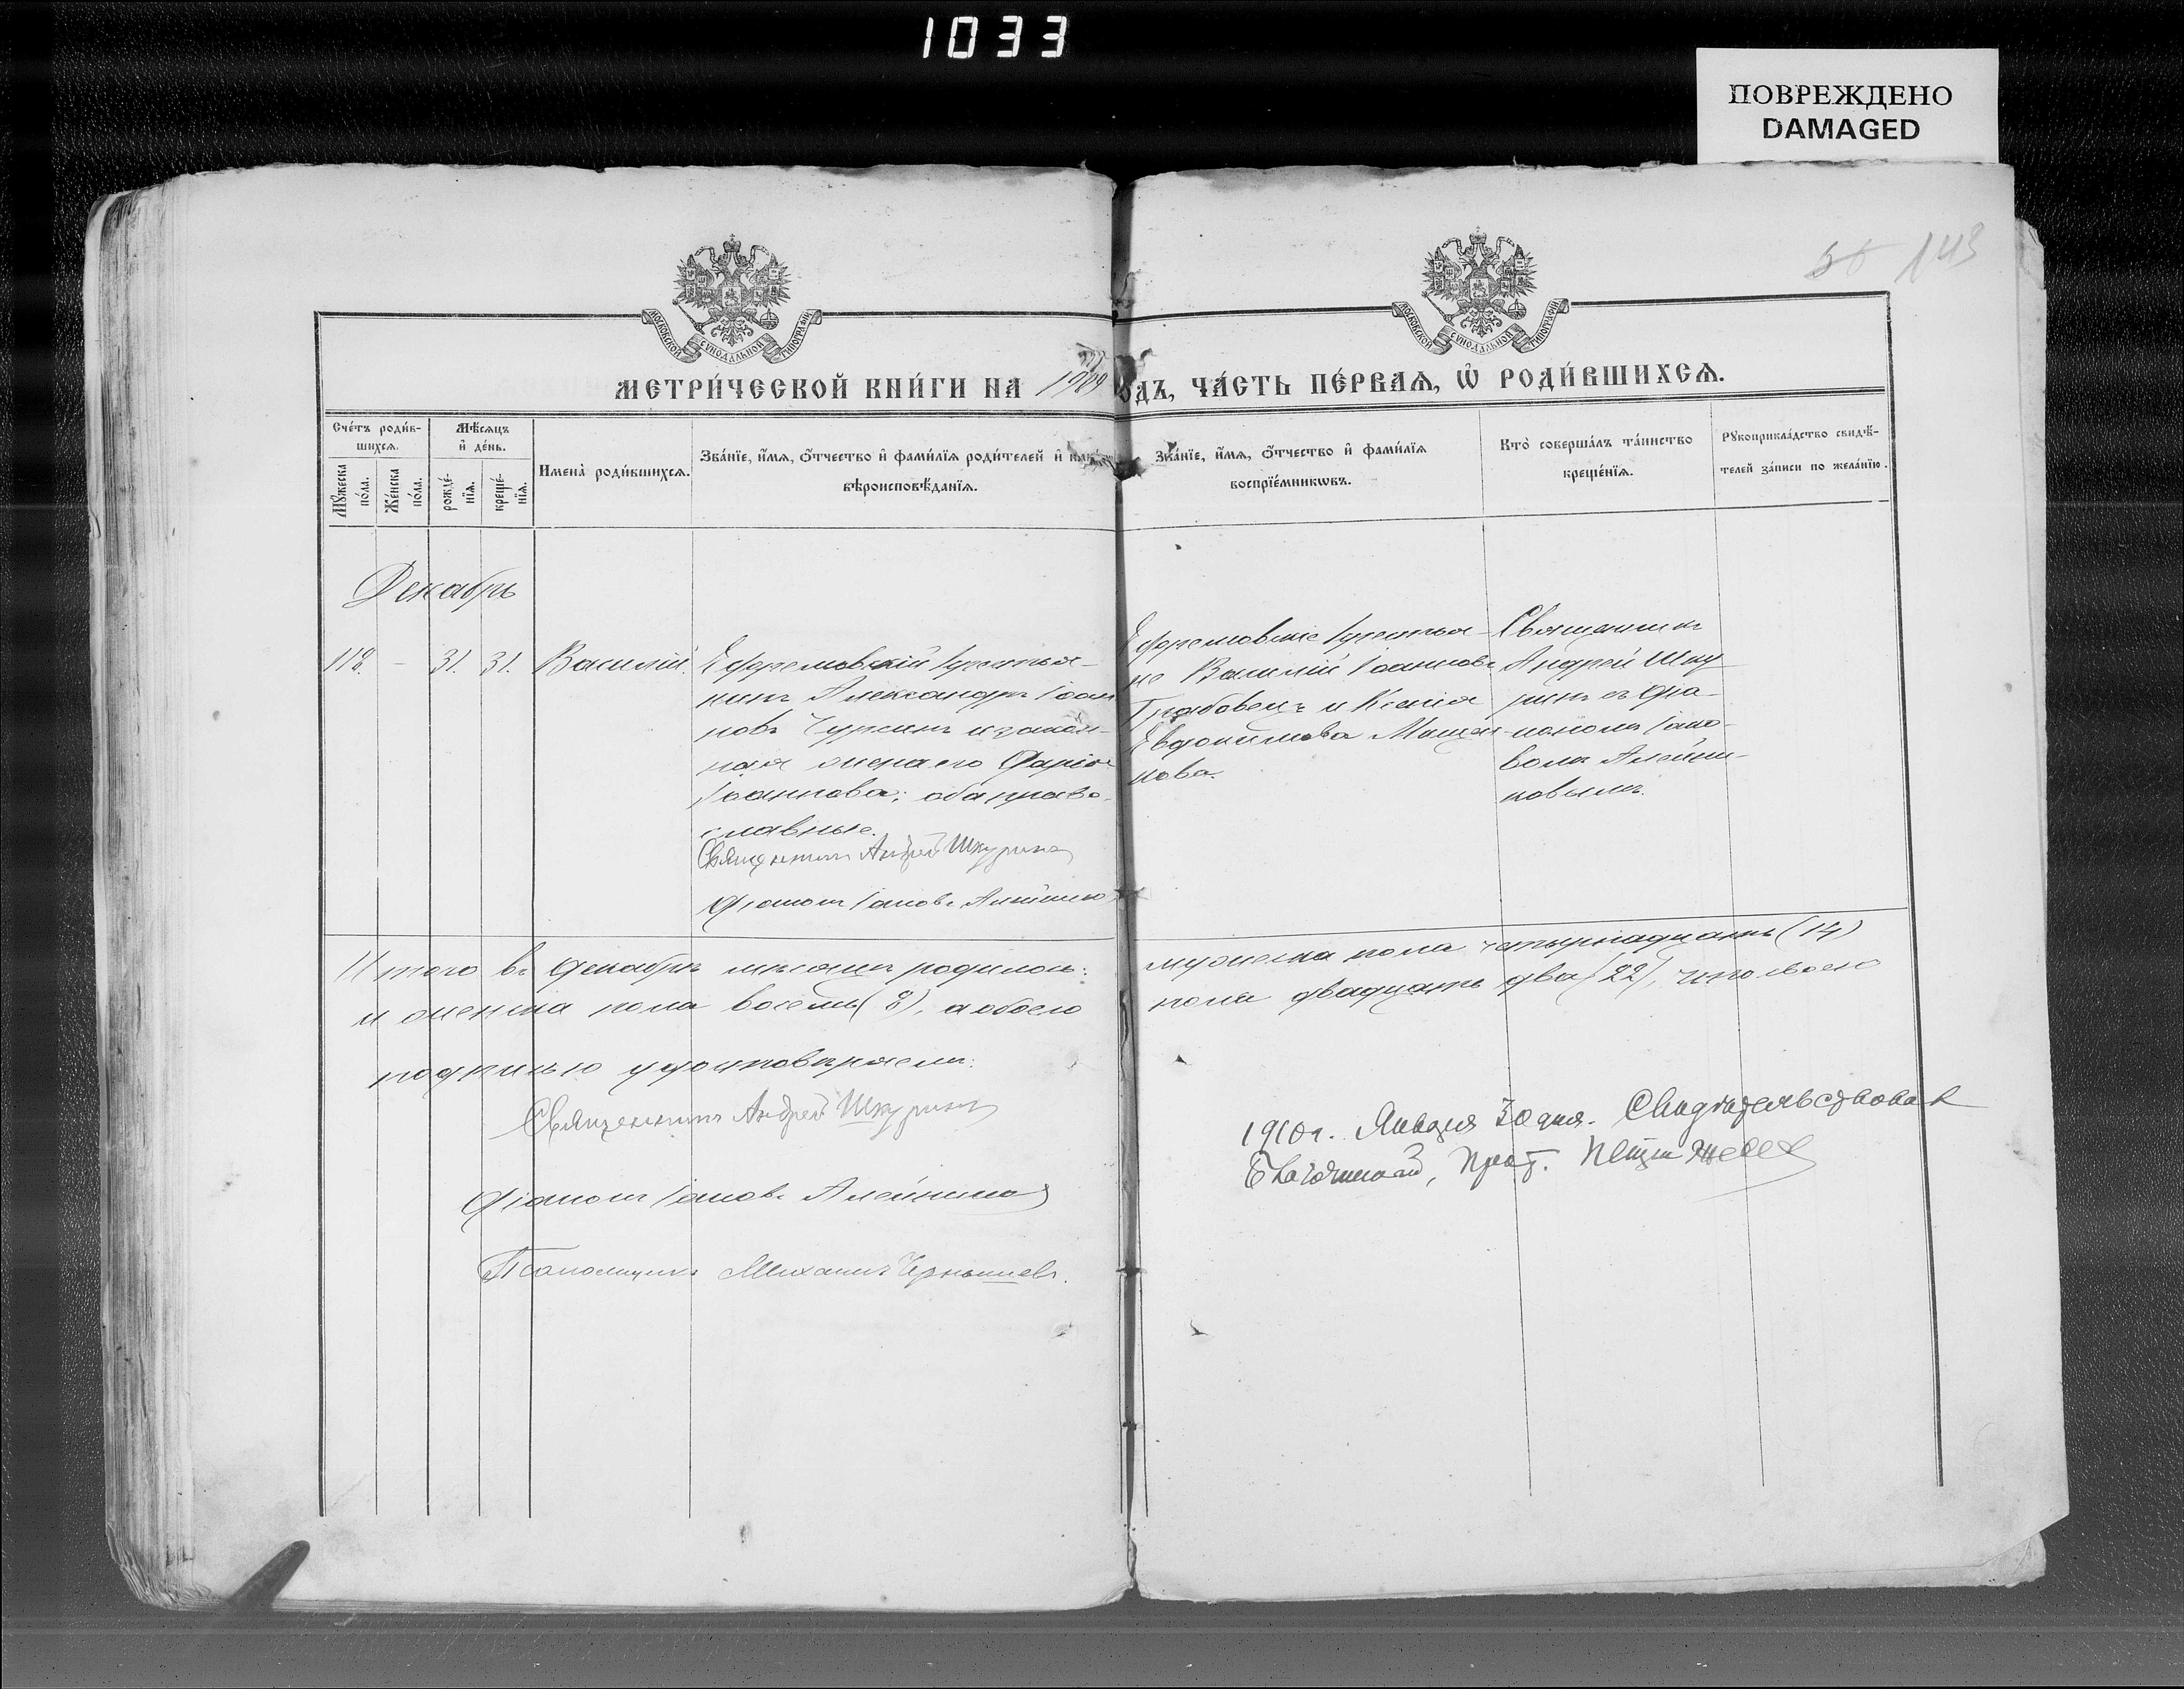 1033
ПОВРЕЖДЕНО
DAMAGED
143
МОСКОВСКОЙ СѴНОДАЛЬНОЙ ТИПОГРАФІИ
МОСКОВСКОЙ СѴНОДАЛЬНОЙ ТИПОГРАФІИ
МЕТРИ́ЧЕСКОЙ КНИ́ГИ НА 1909 ОДЪ, ЧА́СТЬ ПЕ́РВАѦ, Ѡ҆ РОДИ́ВШИХСѦ.
Сче́тъ роди́в-
шихсѧ.
Мѣ́сѧцъ
и҆ де́нь.
Мꙋ́жеска
по́ла.
Же́нска
по́ла.
рожде́-
нїѧ.
креще́-
нїѧ.
Имена̀ роди́вшихсѧ.
Зва́нїе, и҆́мѧ, ѻ҆́тчество и҆ фами́лїѧ роди́телей и҆
вѣроисповѣ́данїѧ.
Зва́нїе, и҆́мѧ, ѻ҆́тчество и҆ фами́лїѧ
воспрїе́мникѡвъ.
Кто̀ соверша́лъ та́инство
креще́нїѧ.
Рꙋкоприкла́дство свидѣ́-
телей за́писи по жела́нїю.
Декабрь
118. - 31. 31. Василій.
Ефремовскій крестья-
нинъ Александръ Іоан
новъ Чуркинъ и закон-
ная жена его Дарія
Іоаннова; оба право-
славные.
Священникъ Андрей Шкуринъ
Діаконъ Іаковъ Алейнико
Ефремовскіе крестья-
не Василій Іоанновъ
Грабовецъ и Ксенія
Евдокимова Мищен-
кова.
Священникъ
Андрей Шку
ринъ съ діа-
кономъ Іако-
вомъ Алейни-
ковымъ.
Итого въ Декабрѣ мѣсяцѣ родилось: мужеска пола четырнадцать (14)
и женска пола восемь (8), а обоего пола двадцать два (22), что своею
подписью удостовѣряемъ:
Священникъ Андрей Шкуринъ
Діаконъ Іаковъ Алейников
Псаломщикъ Михаилъ Чернышевъ.
1910 г. Января 30 дня. Свидѣтельствовал
Благочинный, Прот.